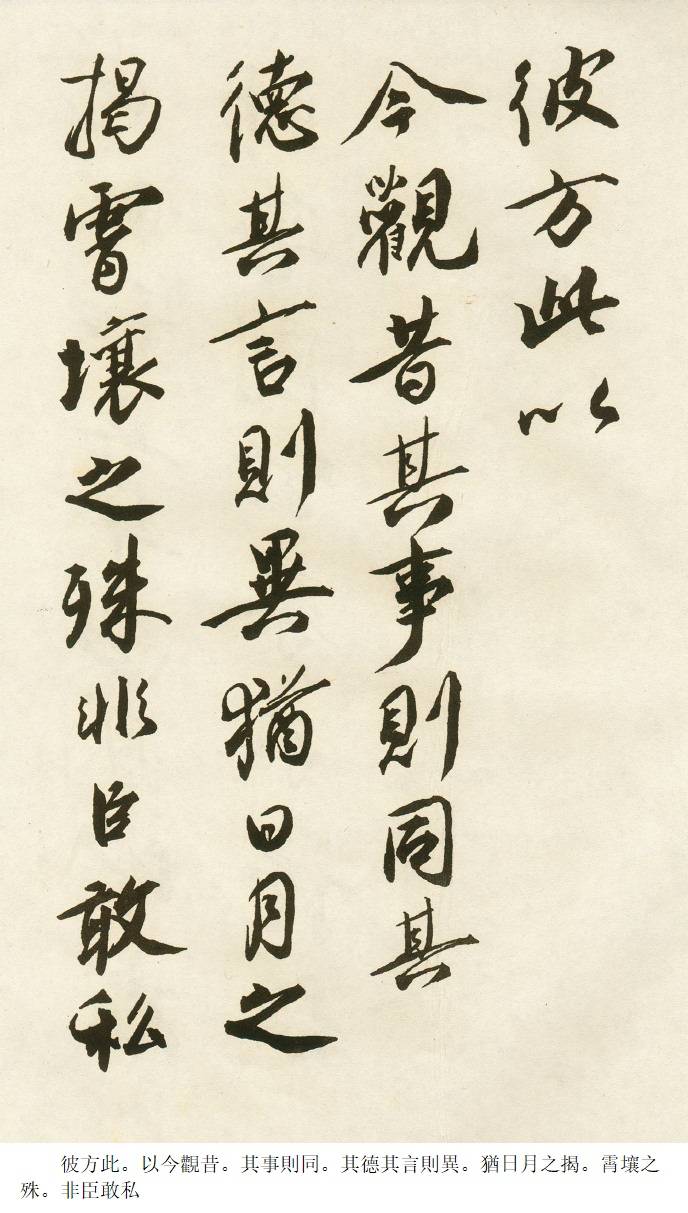 彼方此以
今觀昔其事則同其
德其言則異猶日月之
揭霄壤之殊非臣敢私
彼方此。以今觀昔。其事則同。其德其言則異。猶日月之揭。霄壤之
殊。非臣敢私